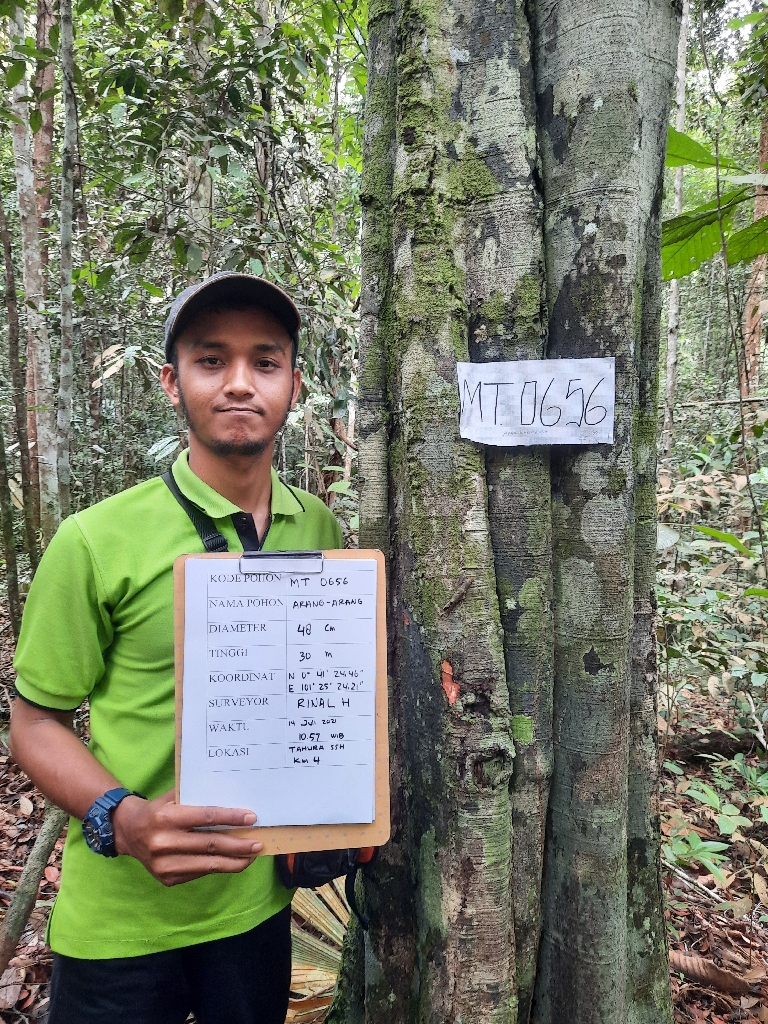 MT 0656
KODE POHON MT 0656
NAMA POHON ARANG-ARANG
DIAMETER 48 cm
TINGGI 30 m
KOORDINAT N 0° 41' 24.46"
E 101° 25' 24.21"
SURVEYOR RINAL H
WAKTU 14 JULI 2021
10.57 WIB
LOKASI TAHURA SSH
KM 4